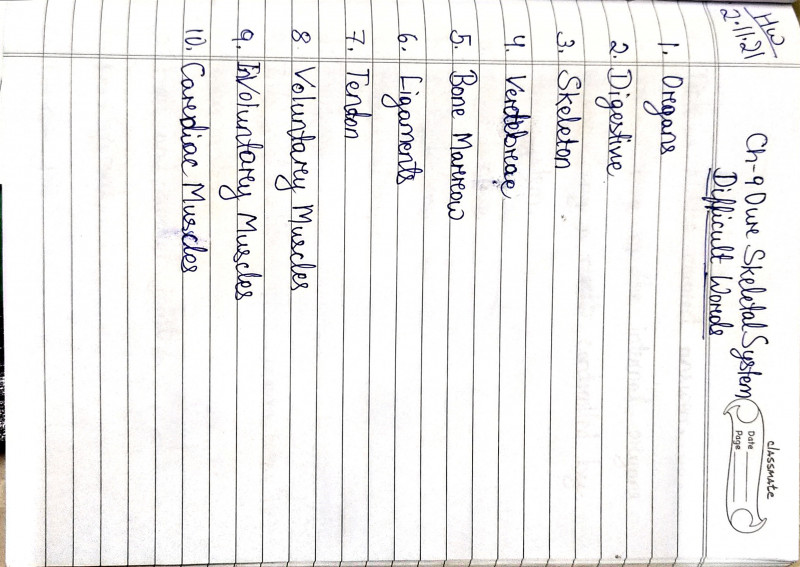 HW
2.11.21
classmate
Date
Page
Ch-9 Our Skeletal System
Difficult Words
1. Organs
2. Digestive
3. Skeleton
4. Vertebrae
5. Bone Marrow
6. Ligaments
7. Tendon
8. Voluntary Muscles
9. InVoluntary Muscles
10. Cardiac Muscles